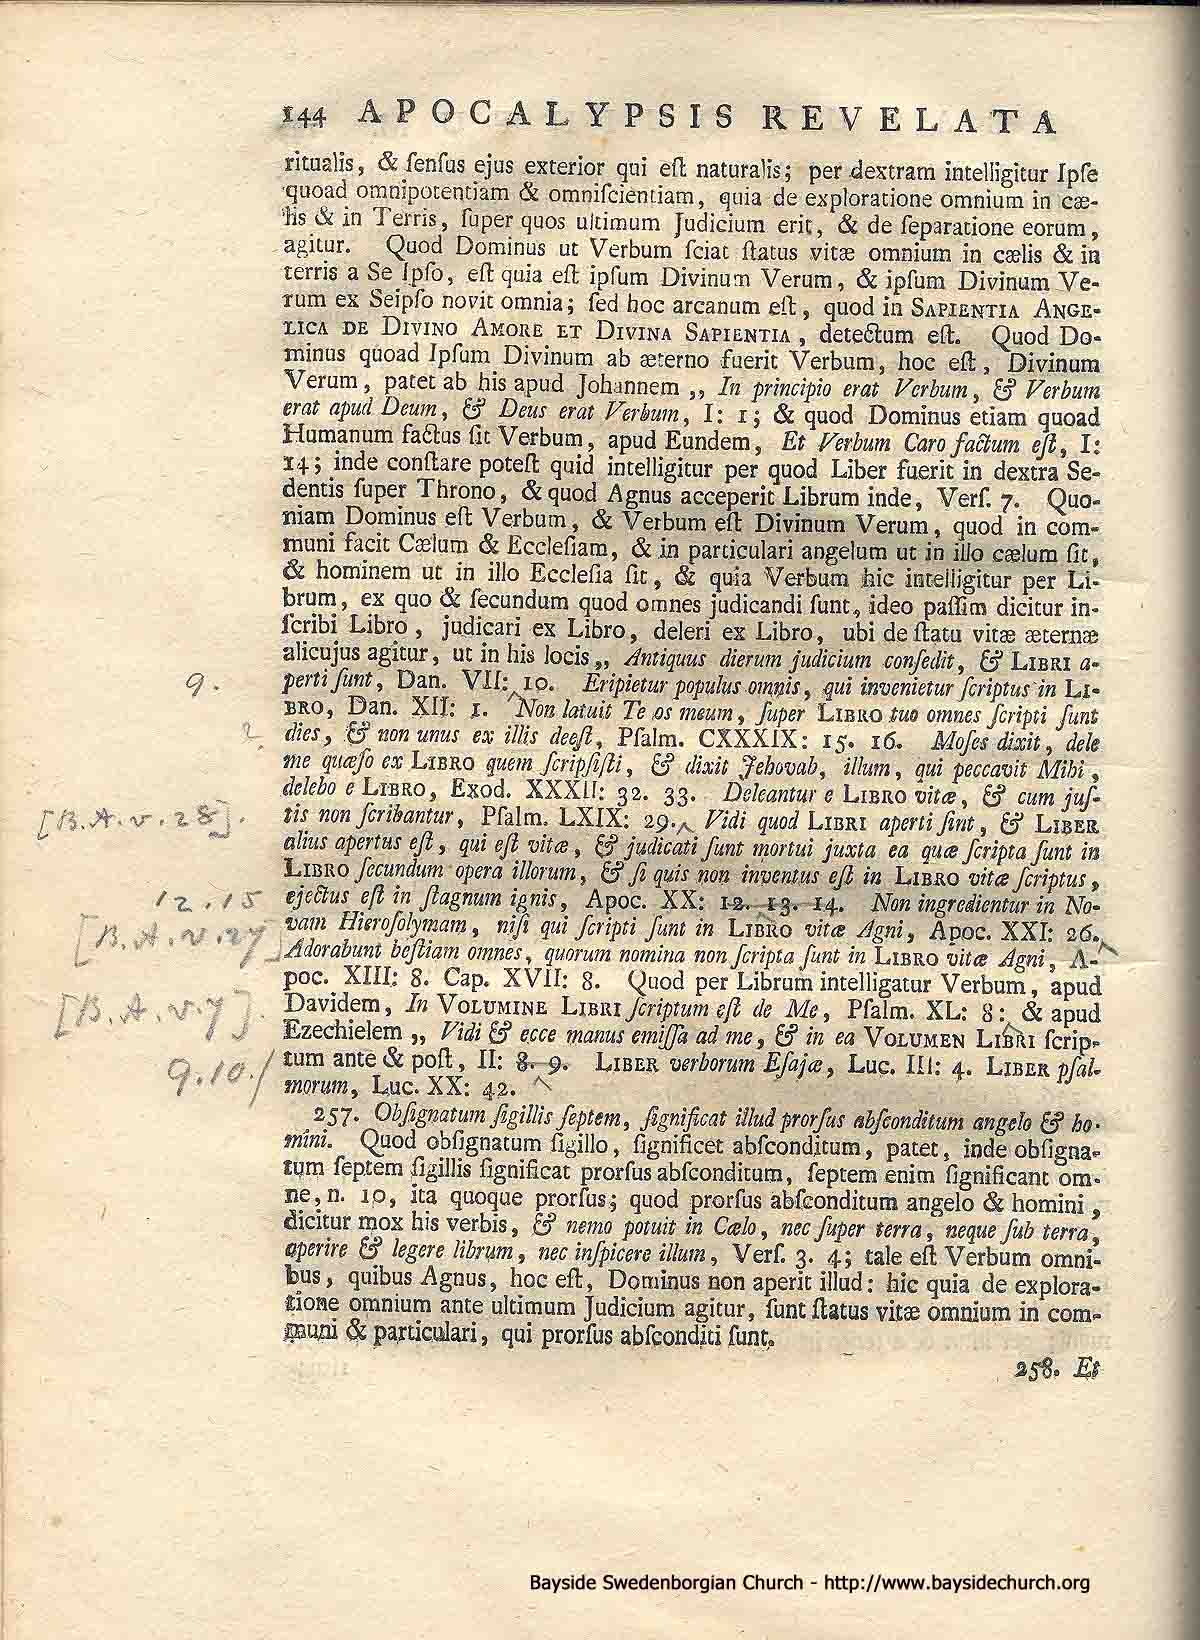 144 APOCALYPSIS REVELATA
ritualis, & ſenſus ejus exterior qui eſt naturalis; per dextram intelligitur Ipſe
quoad omnipotentiam & omniſcientiam, quia de exploratione omnium in cæ-
lis & in Terris, ſuper quos ultimum Judicium erit, & de ſeparatione eorum,
agitur. Quod Dominus ut Verbum ſciat ſtatus vitæ omnium in cælis & in
terris a Se Ipſo, eſt quia eſt ipſum Divinum Verum, & ipſum Divinum Ve-
rum ex Seipſo novit omnia; ſed hoc arcanum eſt, quod in SAPIENTIA ANGE-
LICA DE DIVINO AMORE ET DIVINA SAPIENTIA, detectum eſt. Quod Do-
minus quoad Ipſum Divinum ab æterno fuerit Verbum, hoc eſt, Divinum
Verum, patet ab his apud Johannem „ In principio erat Verbum, & Verbum
erat apud Deum, & Deus erat Verbum, I: 1; & quod Dominus etiam quoad
Humanum factus ſit Verbum, apud Eundem, Et Verbum Caro factum eſt, I:
14; inde conſtare poteſt quid intelligitur per quod Liber fuerit in dextra Se-
dentis ſuper Throno, & quod Agnus acceperit Librum inde, Verſ. 7. Quo-
niam Dominus eſt Verbum, & Verbum eſt Divinum Verum, quod in com-
muni facit Cælum & Eccleſiam, & in particulari angelum ut in illo cælum ſit,
& hominem ut in illo Eccleſia ſit, & quia Verbum hic intelligitur per Li-
brum, ex quo & ſecundum quod omnes judicandi ſunt, ideo paſſim dicitur in-
ſcribi Libro, judicari ex Libro, deleri ex Libro, ubi de ſtatu vitæ æternæ
alicujus agitur, ut in his locis „ Antiquus dierum judicium conſedit, & LIBRI a-
9. perti ſunt, Dan. VII: 10. Eripietur populus omnis, qui invenietur ſcriptus in LI-
BRO, Dan. XII: 1. Non latuit Te os meum, ſuper LIBRO tuo omnes ſcripti ſunt
? dies, & non unus ex illis deeſt, Pſalm. CXXXIX: 15. 16. Moſes dixit, dele
me quæſo ex LIBRO quem ſcripſiſti, & dixit Jehovah, illum, qui peccavit Mihi,
delebo e LIBRO, Exod. XXXII: 32. 33. Deleantur e LIBRO vitæ, & cum juſ-
[B.A.v.28]. tis non ſcribantur, Pſalm. LXIX: 29. Vidi quod LIBRI aperti ſint, & LIBER
alius apertus eſt, qui eſt vitæ, & judicati ſunt mortui juxta ea quæ ſcripta ſunt in
LIBRO ſecundum opera illorum, & ſi quis non inventus eſt in LIBRO vitæ ſcriptus,
12.15 ejectus eſt in ſtagnum ignis, Apoc. XX: 12. 13. 14. Non ingredientur in No-
[B.A.v.27] vam Hieroſolymam, niſi qui ſcripti ſunt in LIBRO vitæ Agni, Apoc. XXI: 26.
Adorabunt beſtiam omnes, quorum nomina non ſcripta ſunt in LIBRO vitæ Agni, A-
poc. XIII: 8. Cap. XVII: 8. Quod per Librum intelligatur Verbum, apud
[B.A.v.7]. Davidem, In VOLUMINE LIBRI ſcriptum eſt de Me, Pſalm. XL: 8: & apud
Ezechielem „ Vidi & ecce manus emiſſa ad me, & in ea VOLUMEN LIBRI ſcrip-
9.10./ tum ante & poſt, II: 8. 9. LIBER verborum Eſajæ, Luc. III: 4. LIBER pſal-
morum, Luc. XX: 42.
257. Obſignatum ſigillis ſeptem, ſignificat illud prorſus abſconditum angelo & ho-
mini. Quod obſignatum ſigillo, ſignificet abſconditum, patet, inde obſigna-
tum ſeptem ſigillis ſignificat prorſus abſconditum, ſeptem enim ſignificant om-
ne, n. 10, ita quoque prorſus; quod prorſus abſconditum angelo & homini,
dicitur mox his verbis, & nemo potuit in Cælo, nec ſuper terra, neque ſub terra,
aperire & legere librum, nec inſpicere illum, Verſ. 3. 4; tale eſt Verbum omni-
bus, quibus Agnus, hoc eſt, Dominus non aperit illud: hic quia de explora-
tione omnium ante ultimum Judicium agitur, ſunt ſtatus vitæ omnium in com-
muni & particulari, qui prorſus abſconditi ſunt.
258. Et
Bayside Swedenborgian Church - http://www.baysidechurch.org